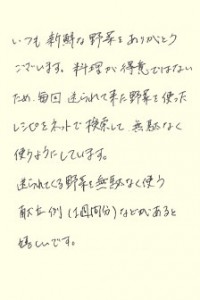 いつも新鮮な野菜をありがとう
ございます。料理が得意ではない
ため、毎回送られて来た野菜を使った
レシピをネットで検索して、無駄なく
使うようにしています。
送られてくる野菜を無駄なく使う
献立例(1週間分)などがあると
嬉しいです。